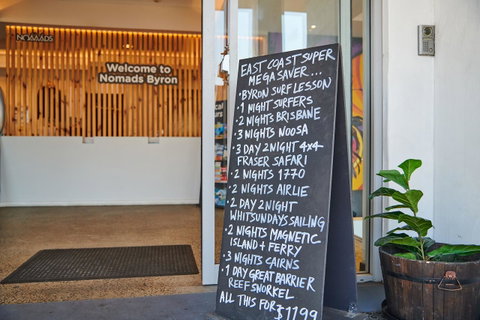 NOMADS
Welcome to
Nomads Byron
EAST COAST SUPER
MEGA SAVER...
• BYRON SURF LESSON
• 1 NIGHT SURFERS
• 2 NIGHTS BRISBANE
• 3 NIGHTS NOOSA
• 3 DAY 2NIGHT 4x4
FRASER SAFARI
• 2 NIGHTS 1770
• 2 NIGHTS AIRLIE
• 2 DAY 2 NIGHT
WHITSUNDAYS SAILING
• 2 NIGHTS MAGNETIC
ISLAND + FERRY
• 3 NIGHTS CAIRNS
• 1 DAY GREAT BARRIER
REEF SNORKEL
ALL THIS FOR $1199